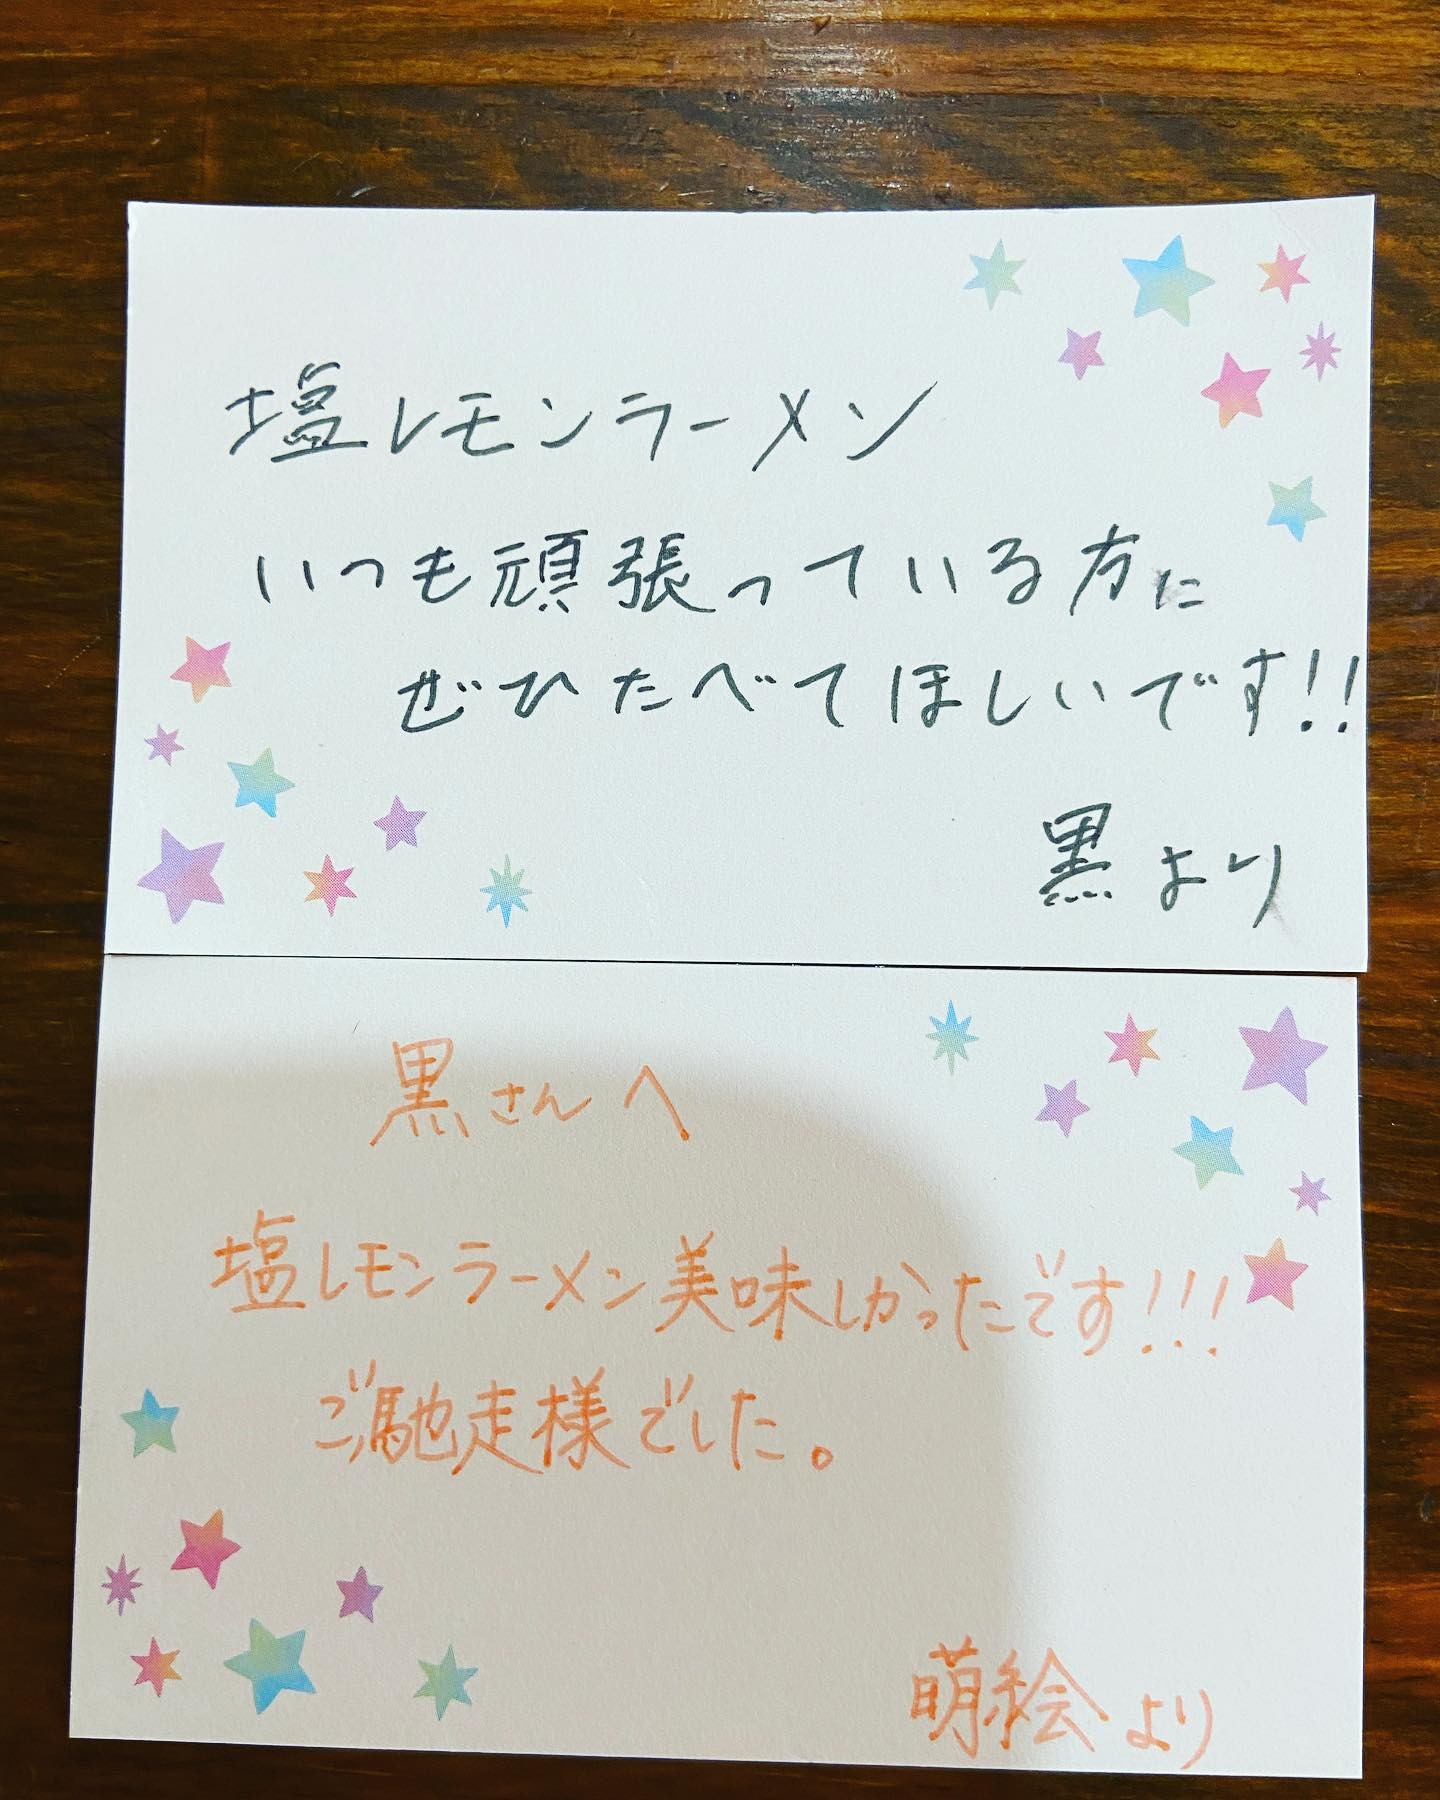 塩レモンラーメン
いつも頑張っている方に
ぜひたべてほしいです!!
黒より
黒さんへ
塩レモンラーメン美味しかったです!!!
ご馳走様でした。
萌絵より